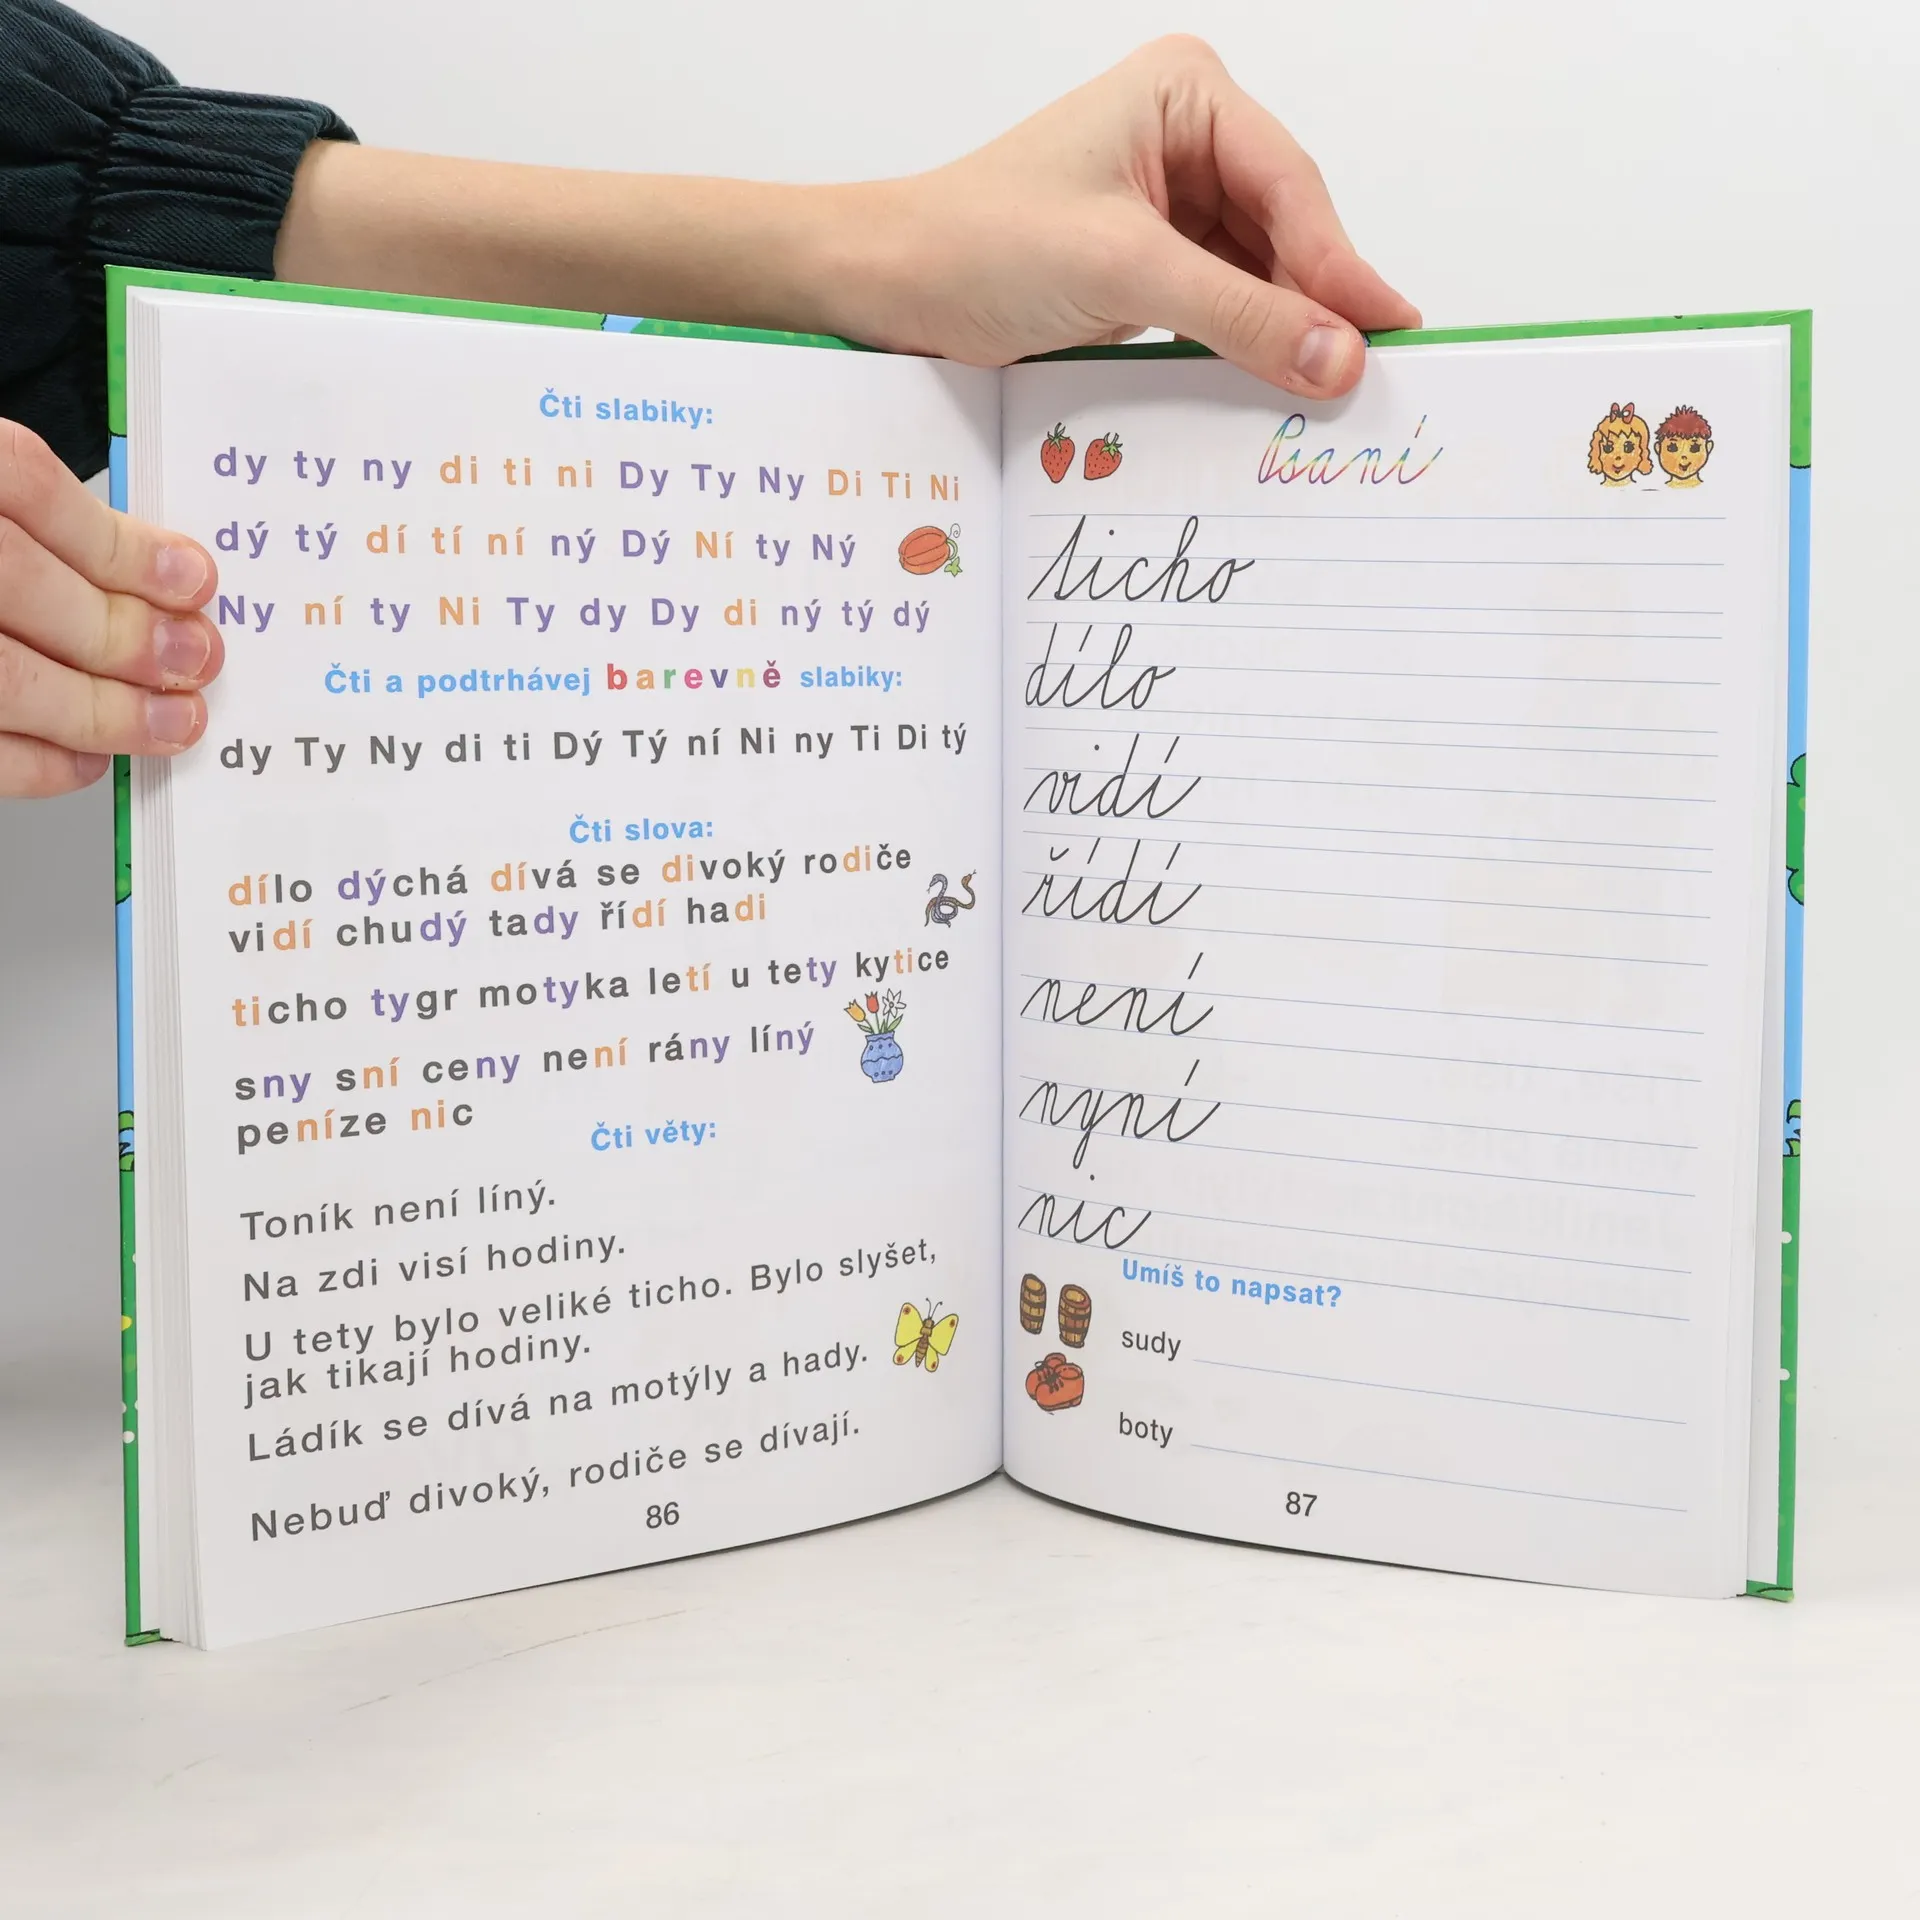 Čti slabiky:
dy ty ny di ti ni Dy Ty Ny Di Ti Ni
dý tý dí tí ní ný Dý Ní ty Ný
Ny ní ty Ni Ty dy Dy di ný tý dý
Čti a podtrhávej barevně slabiky:
dy Ty Ny di ti Dý Tý ní Ni ny Ti Di tý
Čti slova:
dílo dýchá dívá se divoký rodiče
vidí chudý tady řídí hadi
ticho tygr motyka letí u tety kytice
sny sní ceny není rány líný
peníze nic
Čti věty:
Toník není líný.
Na zdi visí hodiny.
U tety bylo veliké ticho. Bylo slyšet,
jak tikají hodiny.
Ládík se dívá na motýly a hady.
Nebuď divoký, rodiče se dívají.
86
Psaní
ticho
dílo
vidí
řídí
není
nyní
nic
Umíš to napsat?
sudy
boty
87